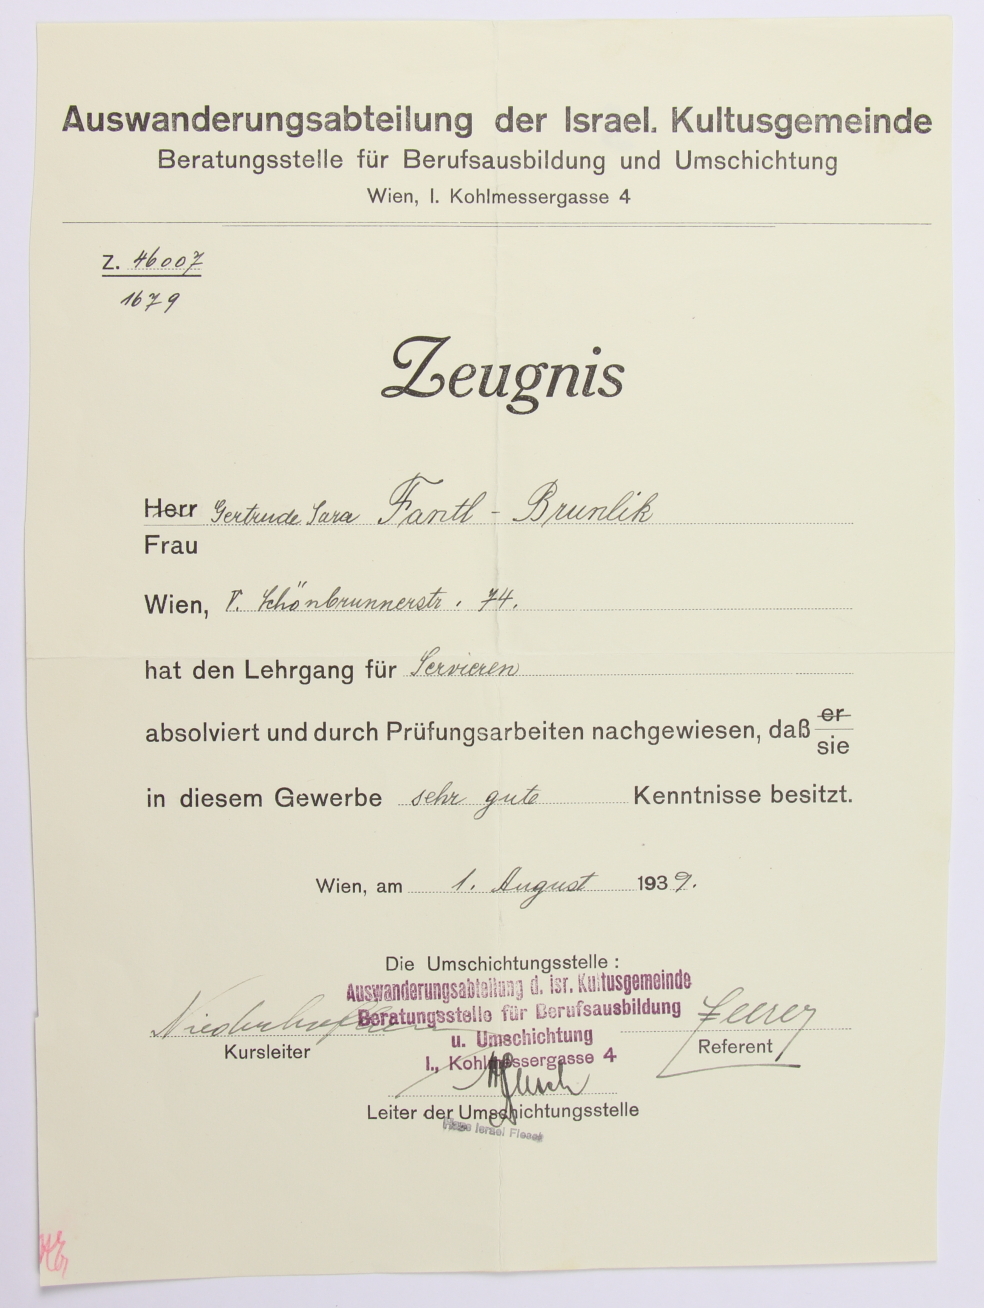 Auswanderungsabteilung der Israel. Kultusgemeinde
Beratungsstelle für Berufsausbildung und Umschichtung
Wien, I. Kohlmessergasse 4
Z. 46007
1679
Zeugnis
Herr Gertrude Sara Fantl - Brunlik
Frau
Wien, V. Schönbrunnerstr. 74.
hat den Lehrgang für Servieren
absolviert und durch Prüfungsarbeiten nachgewiesen, daß er
sie
in diesem Gewerbe sehr gute Kenntnisse besitzt.
Wien, am 1. August 1939.
Die Umschichtungsstelle :
Auswanderungsabteilung d. isr. Kultusgemeinde
Beratungsstelle für Berufsausbildung
u. Umschichtung
I., Kohlmessergasse 4
Kursleiter
Referent
Leiter der Umschichtungsstelle
Israel